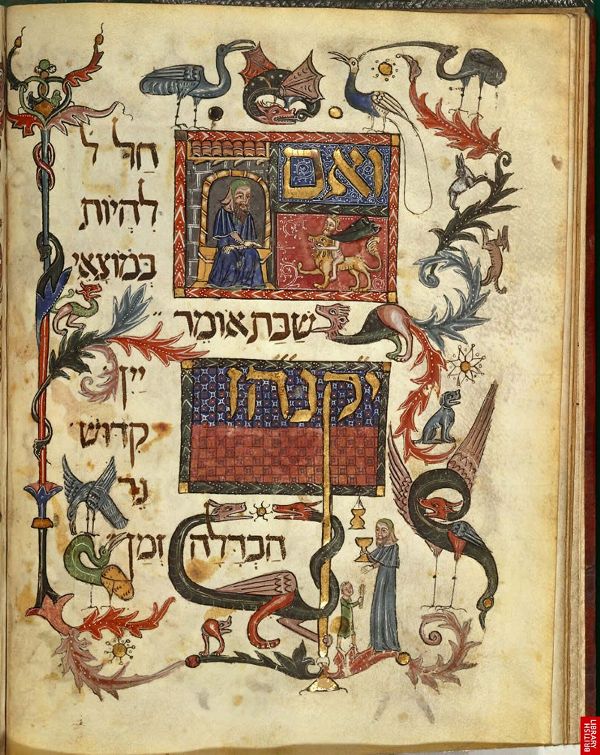 ואם חל ל
להיות
במוצאי
שבת אומר
יקנהז
יין
קדוש
נר
הבדלה זמן
BRITISH
LIBRARY